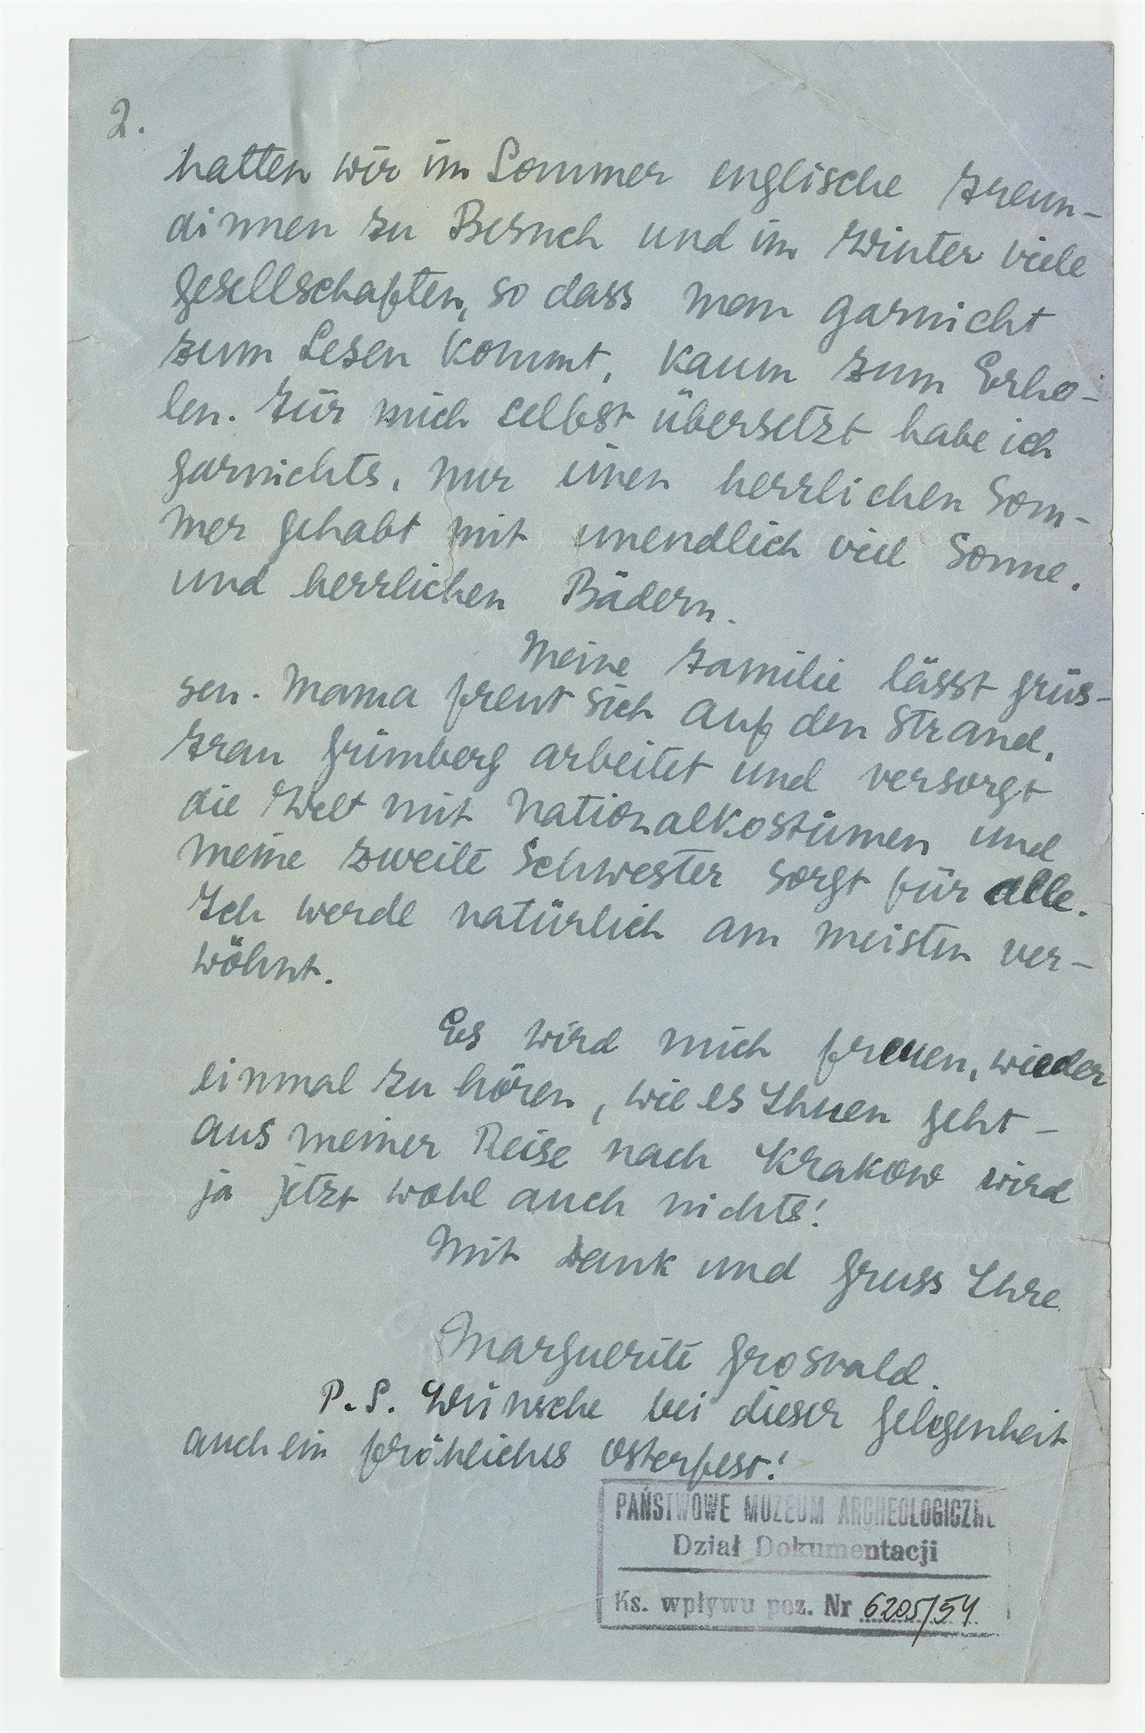 2.
hatten wir im Sommer englische Freun-
dinnen zu Besuch und im Winter viele
Gesellschaften, so dass man garnicht
zum Lesen kommt, kaum zum Erho-
len. Für mich selbst übersetzt habe ich
garnichts, nur einen herrlichen Som-
mer gehabt mit unendlich viel Sonne.
und herrlichen Bädern.
Meine Familie lässt grüs-
sen. Mama freut sich auf den Strand,
Frau Grimberg arbeitet und versorgt
die Welt mit Nationalkostümen und
meine zweite Schwester sorgt für alle.
Ich werde natürlich am meisten ver-
wöhnt.
Es wird mich freuen, wieder
einmal zu hören, wie es Ihnen geht –
aus meiner Reise nach Krakow wird
ja jetzt wohl auch nichts!
Mit Dank und Gruss Ihre
Marguerite Grosvald.
P.S. Wünsche bei dieser Gelegenheit
auch ein fröhliches Osterfest!
PAŃSTWOWE MUZEUM ARCHEOLOGICZNE
Dział Dokumentacji
Ks. wpływu poz. Nr 6205/54